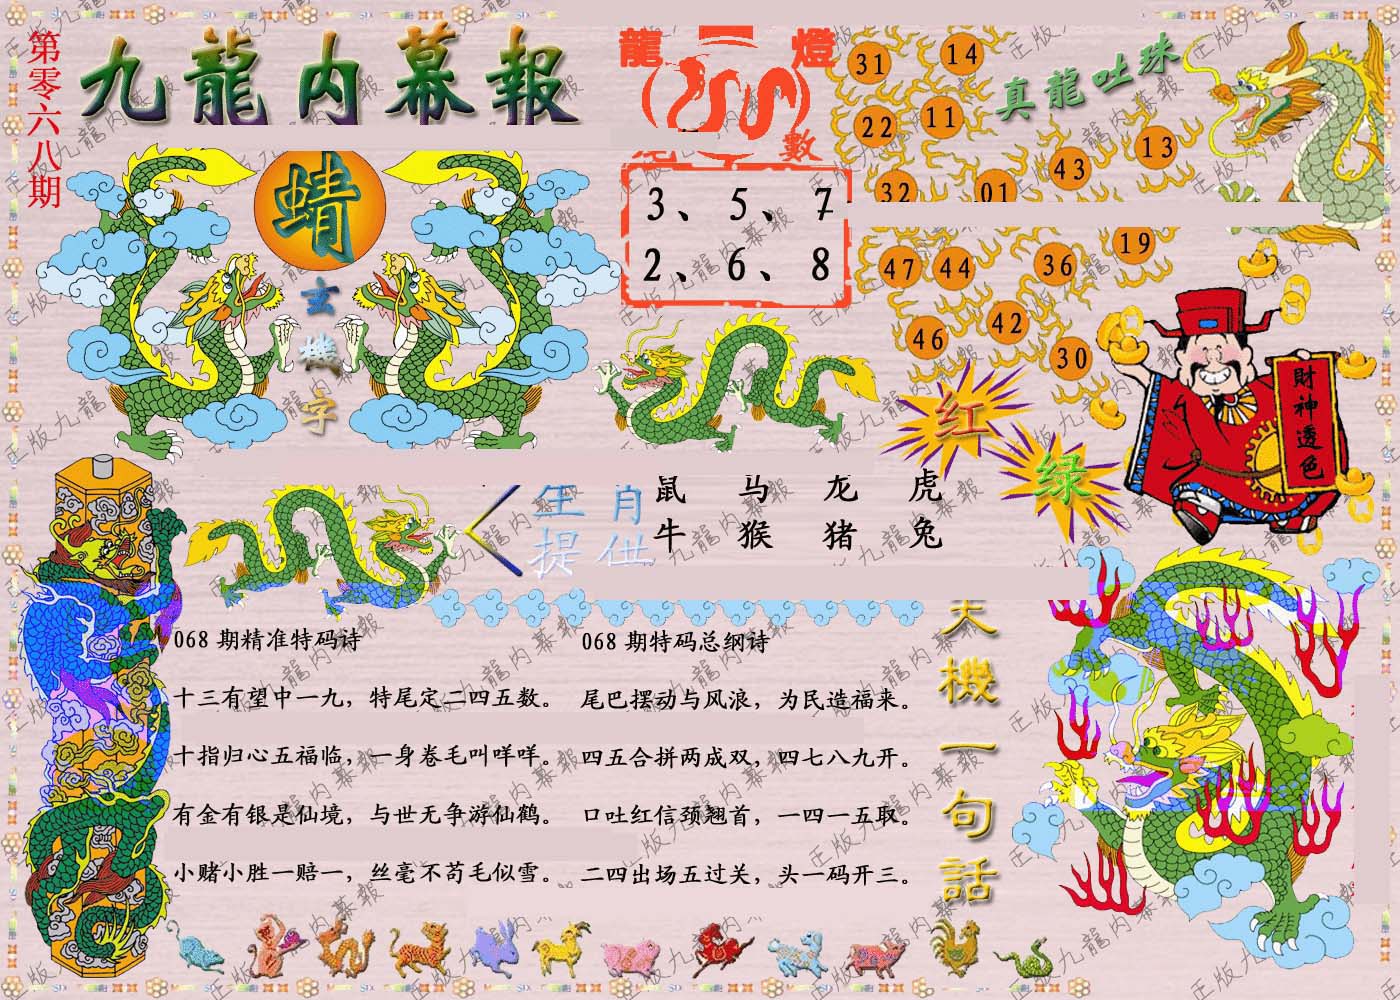 第零六八期
九龍内幕報
蜻
玄機字
龍燈
數
3、5、7
2、6、8
真龍吐珠
31 14
22 11
32 01 43 13
47 44 36 19
46 42 30
红
绿
財神透色
生肖
提供
鼠 马 龙 虎
牛 猴 猪 兔
068期精准特码诗
十三有望中一九，特尾定二四五数。
十指归心五福临，一身卷毛叫咩咩。
有金有银是仙境，与世无争游仙鹤。
小赌小胜一赔一，丝毫不苟毛似雪。
068期特码总纲诗
尾巴摆动与风浪，为民造福来。
四五合拼两成双，四七八九开。
口吐红信颈翘首，一四一五取。
二四出场五过关，头一码开三。
天機一句話
正版九龍内幕報